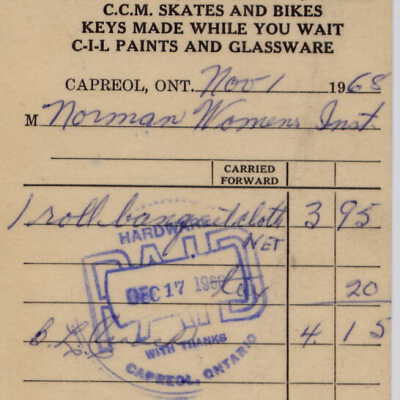 C.C.M. SKATES AND BIKES
KEYS MADE WHILE YOU WAIT
C-I-L PAINTS AND GLASSWARE
CAPREOL, ONT. Nov 1 1968
M Norman Womens Inst.
CARRIED
FORWARD
1 roll banquet cloth 3 95
NET
HARDWARE
PAID
DEC 17 1968
20
4.15
WITH THANKS
CAPREOL, ONTARIO